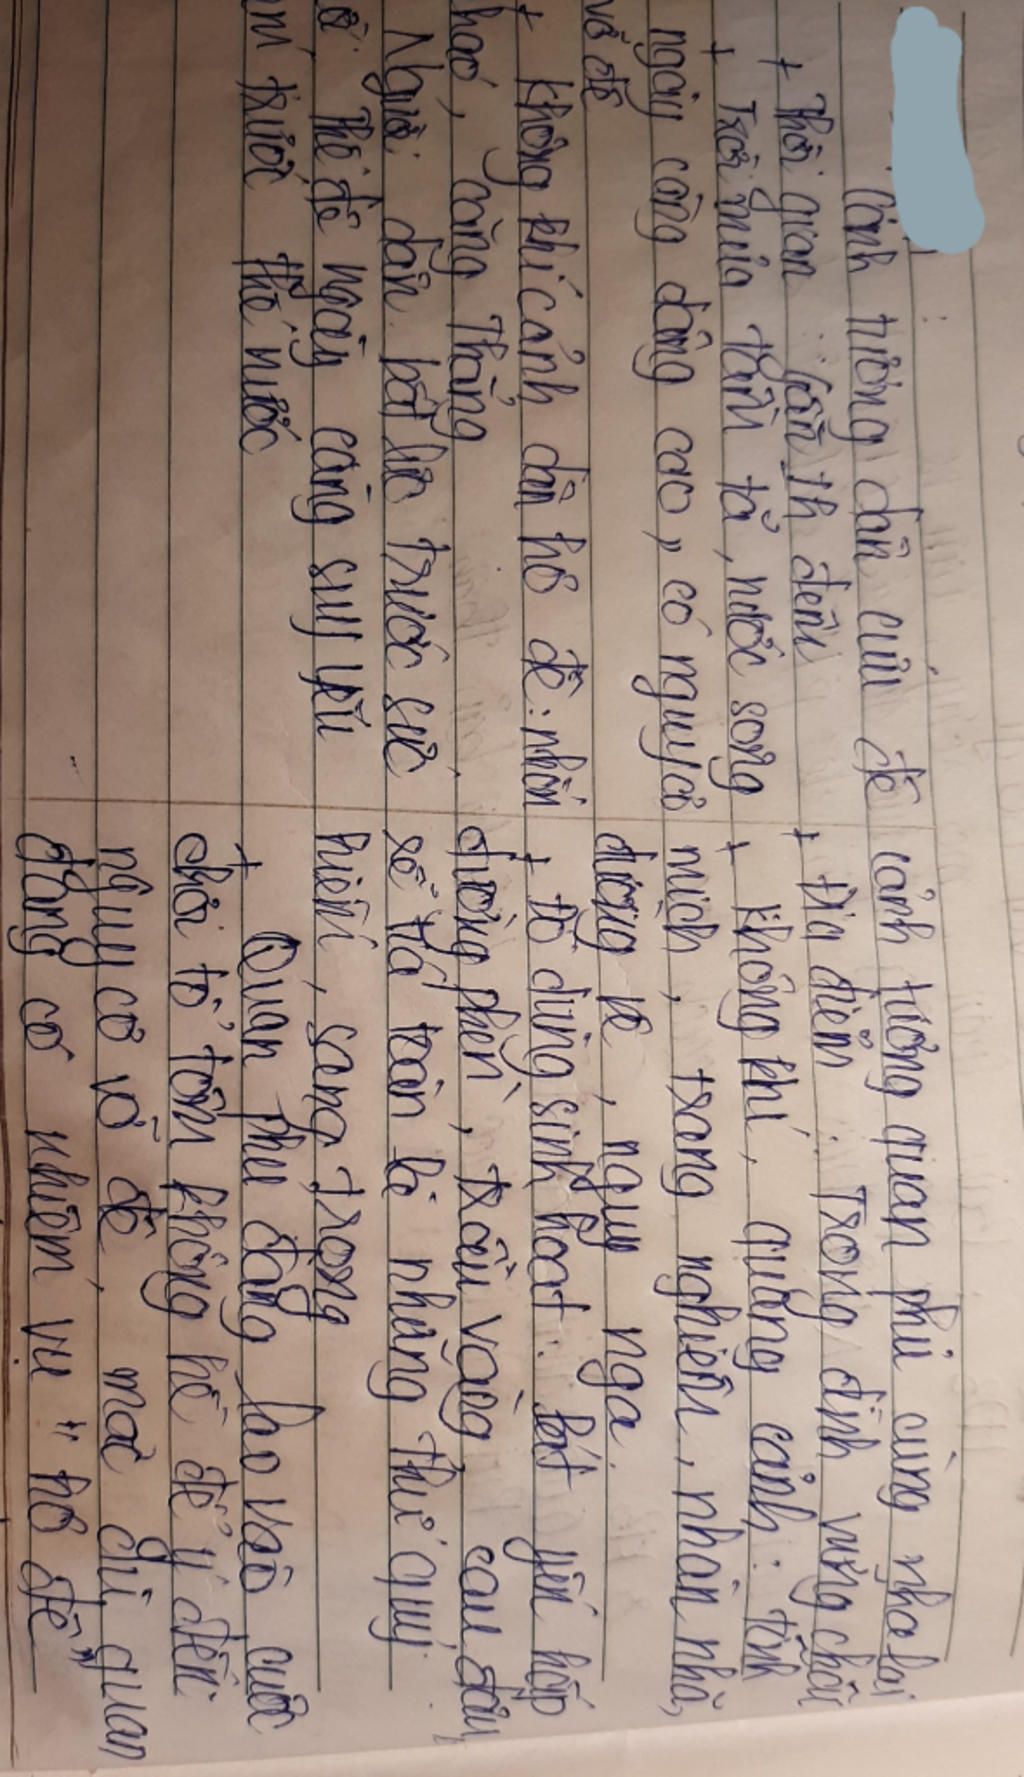 Cảnh tượng dân cứu đê
+ Thời gian : Gần 1h đêm
+ Trời mưa tầm tả, nước sông
ngày càng dâng cao, có nguy cơ
vỡ đê
+ Không khí cảnh dân hộ đê: nhốn
háo, căng thẳng
Người dân bất lực trước sức
Thế đê ngày càng suy yếu
trước thế nước
cảnh tượng quan phủ cùng nha lại
+ Địa điểm : Trong đình vững chãi
+ Không khí, quang cảnh : tĩnh
mịch, trang nghiêm, nhàn nhã,
đường vệ, nguy nga.
+ Đồ dùng sinh hoạt : bát yến hấp
đường phèn, trầu vàng, cau đậu,
tía toàn là những thứ quý
hiếm, sang trọng
+ Quan phu đang lao vào cuộc
chơi tổ tôm không hề để ý đến
nguy cơ vỡ đê, mặc dù quan
đang có nhiệm vụ " hộ đê "